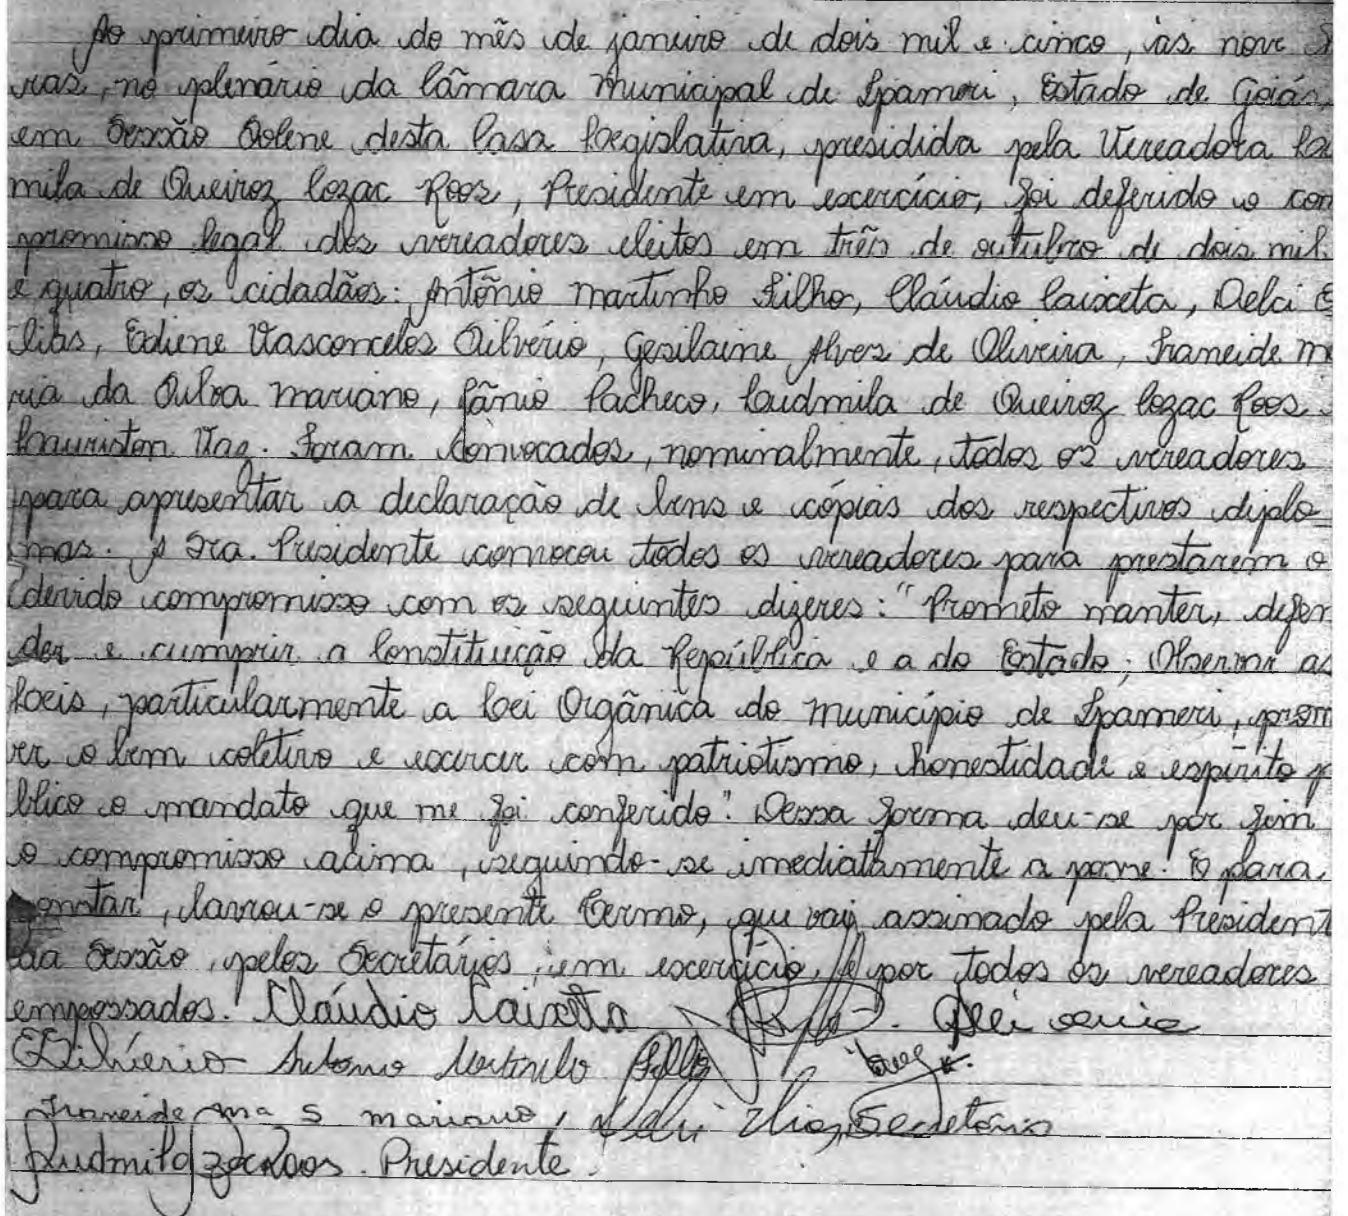 Ao primeiro dia do mês de janeiro de dois mil e cinco, às nove
ras, no plenário da Câmara Municipal de Ipameri, Estado de Goiás,
em Sessão Solene desta Casa Legislativa, presidida pela Vereadora
mila de Queiroz Cozac Roos, Presidente em excercício, foi deferido o com
promisso legal dos vereadores eleitos em três de outubro de dois mil
e quatro, os cidadãos: Antônio Martinho Filho, Cláudio Caixeta, Delci E
lias, Ediene Vasconcelos Silvério, Gesilaine Alves de Oliveira, Iraneide Ma
ria da Silva Mariano, Jânio Pacheco, Ludmila de Queiroz Cozac Roos
Lauriston Vaz. Foram convocados, nominalmente, todos os vereadores
para apresentar a declaração de bens e cópias dos respectivos diplo
mas. A Sra. Presidente convocou todos os vereadores para prestarem o
devido compromisso com os seguintes dizeres: "Prometo manter, defen
der e cumprir a Constituição da República e a do Estado; Observar as
Leis, particularmente a Lei Orgânica do Município de Ipameri, prom
ver o bem coletivo e excercer com patriotismo, honestidade e espírito p
blico o mandato que me foi conferido". Dessa forma deu-se por fim
o compromisso acima, seguindo-se imediatamente a posse. E para
constar, lavrou-se o presente Termo, que vai assinado pela President
da Sessão, pelos Secretários, em excercício, e por todos os vereadores
empossados. Cláudio Caixeta
Silvério Antonio Martinho Filho
Iraneide Mª S Mariano, Delci Elias, Secretário
Ludmila Cozac Roos. Presidente.